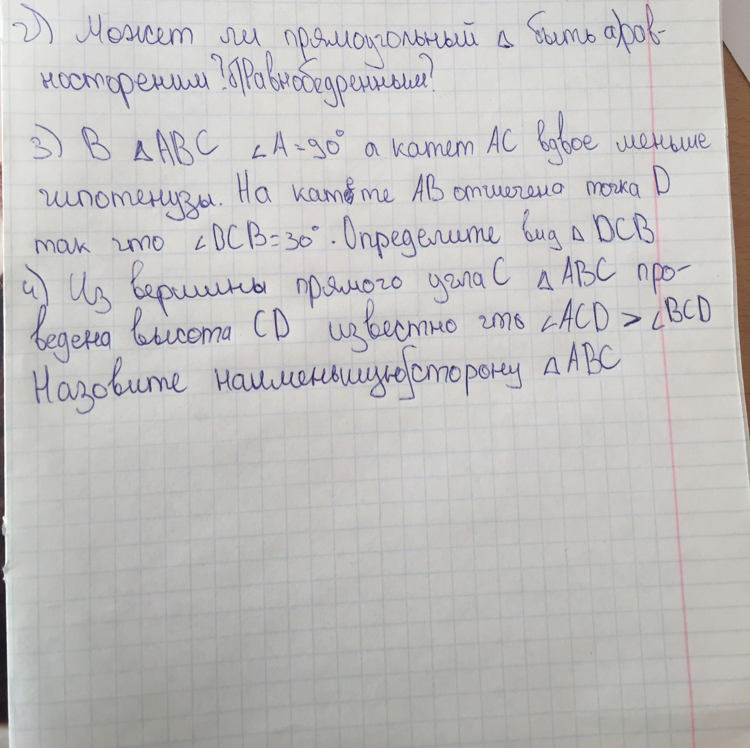 2) Может ли прямоугольный △ быть а)рав-
носторением? б)Равнобедренным?
3) В △ABC ∠A=90° а катет AC вдвое меньше
гипотенузы. На катете AB отмечена точка D
так что ∠DCB=30°. Определите вид △ DCB
4) Из вершины прямого угла C △ABC про-
ведена высота CD известно что ∠ACD > ∠BCD
Назовите наименьшую сторону △ABC